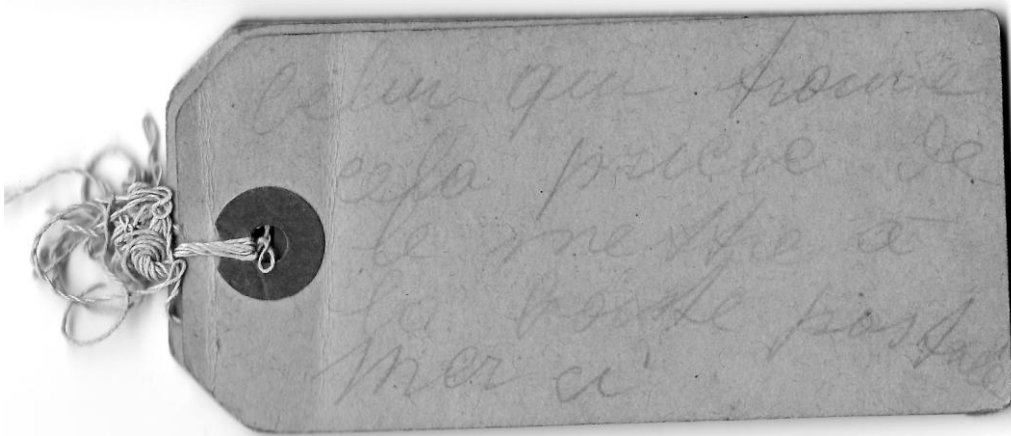 Celui qui trouve
cela prière de
le mettre à
la boite postale
Mer ci